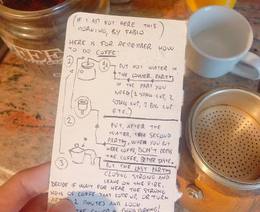 (IF I AM NOT HERE THIS)
MORNING, BY FABIO
HERE IS FOR REMEMBER HOW
TO DO COFFEE:
1)
PUT HOT WATER IN
THE LOWER PART
OF THE PART
YOU NEED (1 SMALL CUP, 2
SMALL CUP, 1 BIG CUP
ETC.)
2)
PUT, AFTER THE
WATER, THE SECOND
PART, WHEN YOU PUT
HERE COFFEE, DON'T PRESS
THE COFFEE,
3)
PUT THE LAST PART
CLOSING STRONG AND
LEAVE ON THE FIRE.
WAIT FOR HEAR THE STRONG
OF COFFEE THAT
OR TURN
2 MINUTES AND LOOK